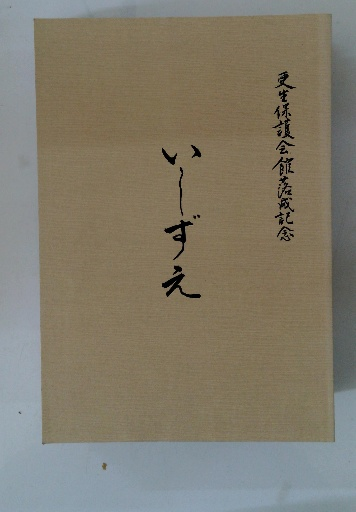 更生保護会館落成記念
いしずえ